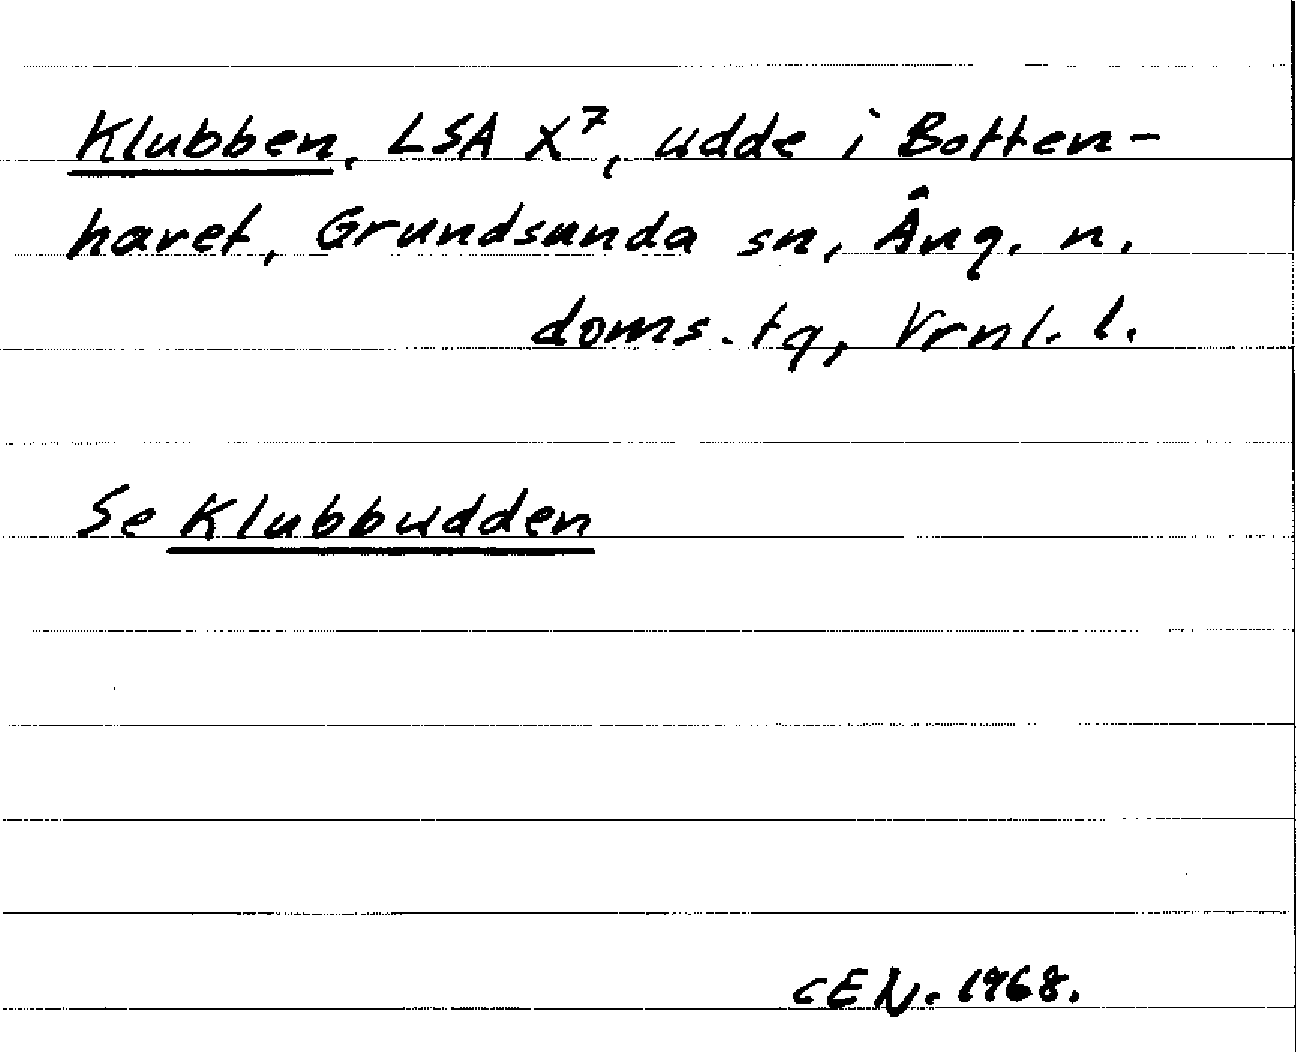 Klubben, LSA X⁷, udde i Botten-
havet, Grundsunda sn, Ång. n.
doms. tg, Vrnl. l.
Se Klubbudden
CEN. 1968.